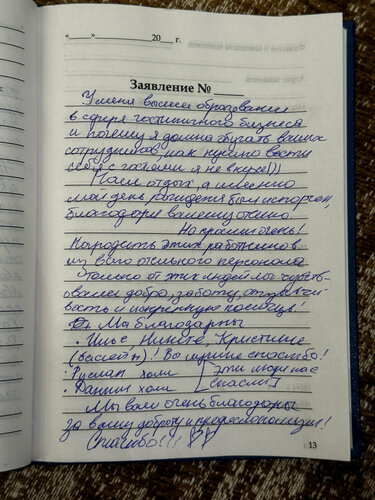 «____»__________ 20___ г.
Заявление № ____
У меня высшее образование
в сфере гостиничного бизнеса
и почему я должна обучать ваших
сотрудников, как нужно вести
себя с гостями я не в курсе)))
Наш отдых, а именно
мой день рождения был испорчен,
благодаря вашему
Но просим очень!
этих работников
из всего персонала
Только от этих людей мы чувство-
вали добро, заботу, отзывчи-
вость и искреннюю помощь!
Мы благодарны
• Илье, Никите, Кристине
! Вам спасибо!
• Руслан холл
Эти люди нас
• Даниил холл
спасли
Мы вам очень благодарны
за вашу доброту и профессионализм!
Спасибо!!!
13